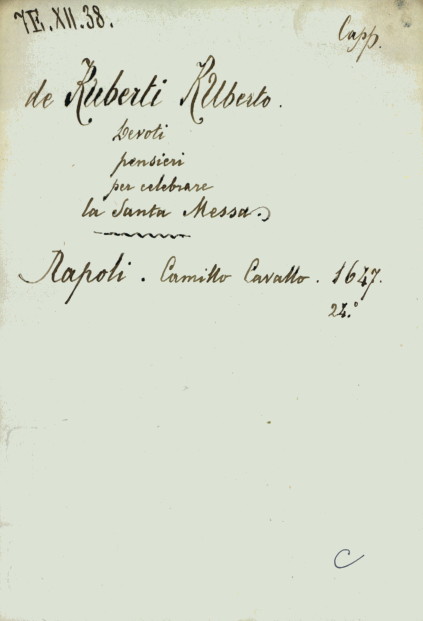 7E.XII.38.
Capp.
de Ruberti Ruberto.
Devoti
pensieri
per celebrare
la Santa Messa.
Napoli. Camillo Cavallo. 1647.
24.°
C